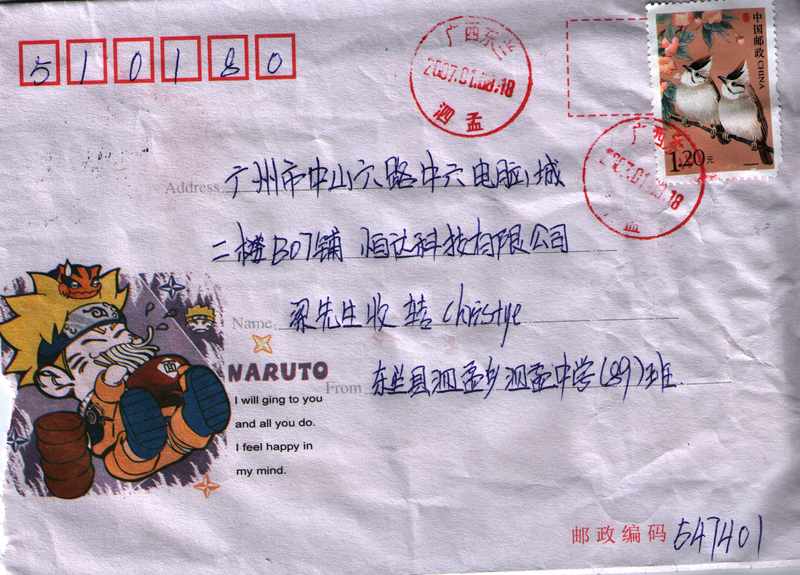 510180
广西东兰
2007.01.08.18
泗孟
中国邮政 CHINA
1.20元
广西东
2007.01.08.18
孟
Address 广州市中山六路中六电脑城
二楼B07铺 恒达科技有限公司
Name 梁先生收 转 Christye
From 东兰县泗孟乡泗孟中学(89)班
NARUTO
I will ging to you
and all you do.
I feel happy in
my mind.
邮政编码 547401